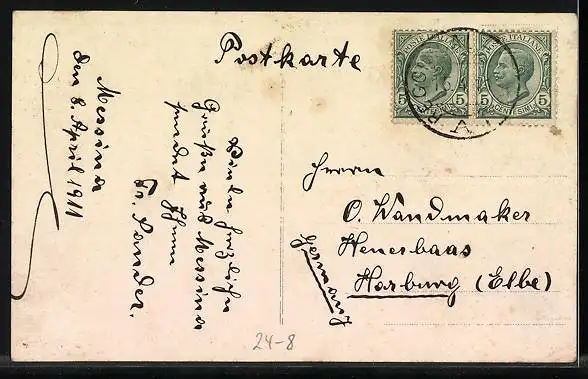 Postkarte
POSTE ITALIANE
5 CENTESIMI 5
POSTE ITALIANE
5 CENTESIMI 5
Messina
den 8. April 1911
Viele herzliche
Grüße aus Messina
sendet Ihnen
Fr. Sander.
Herrn
O. Wandmaker
Heuerbaas
Harburg (Elbe)
Germany
24-8